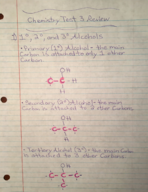 Chemistry Test 3 Review
1°, 2°, and 3° Alcohols
• Primary (1°) Alcohol - the main
Carbon is attached to only 1 other
Carbon.
OH
C-C-H
H
• Secondary (2°) Alcohol - the main
Carbon is attached to 2 other Carbons.
OH
C-C-C
• Tertiary Alcohol (3°) - the main Carbon
is attached to 3 other Carbons.
OH
C-C-C
C